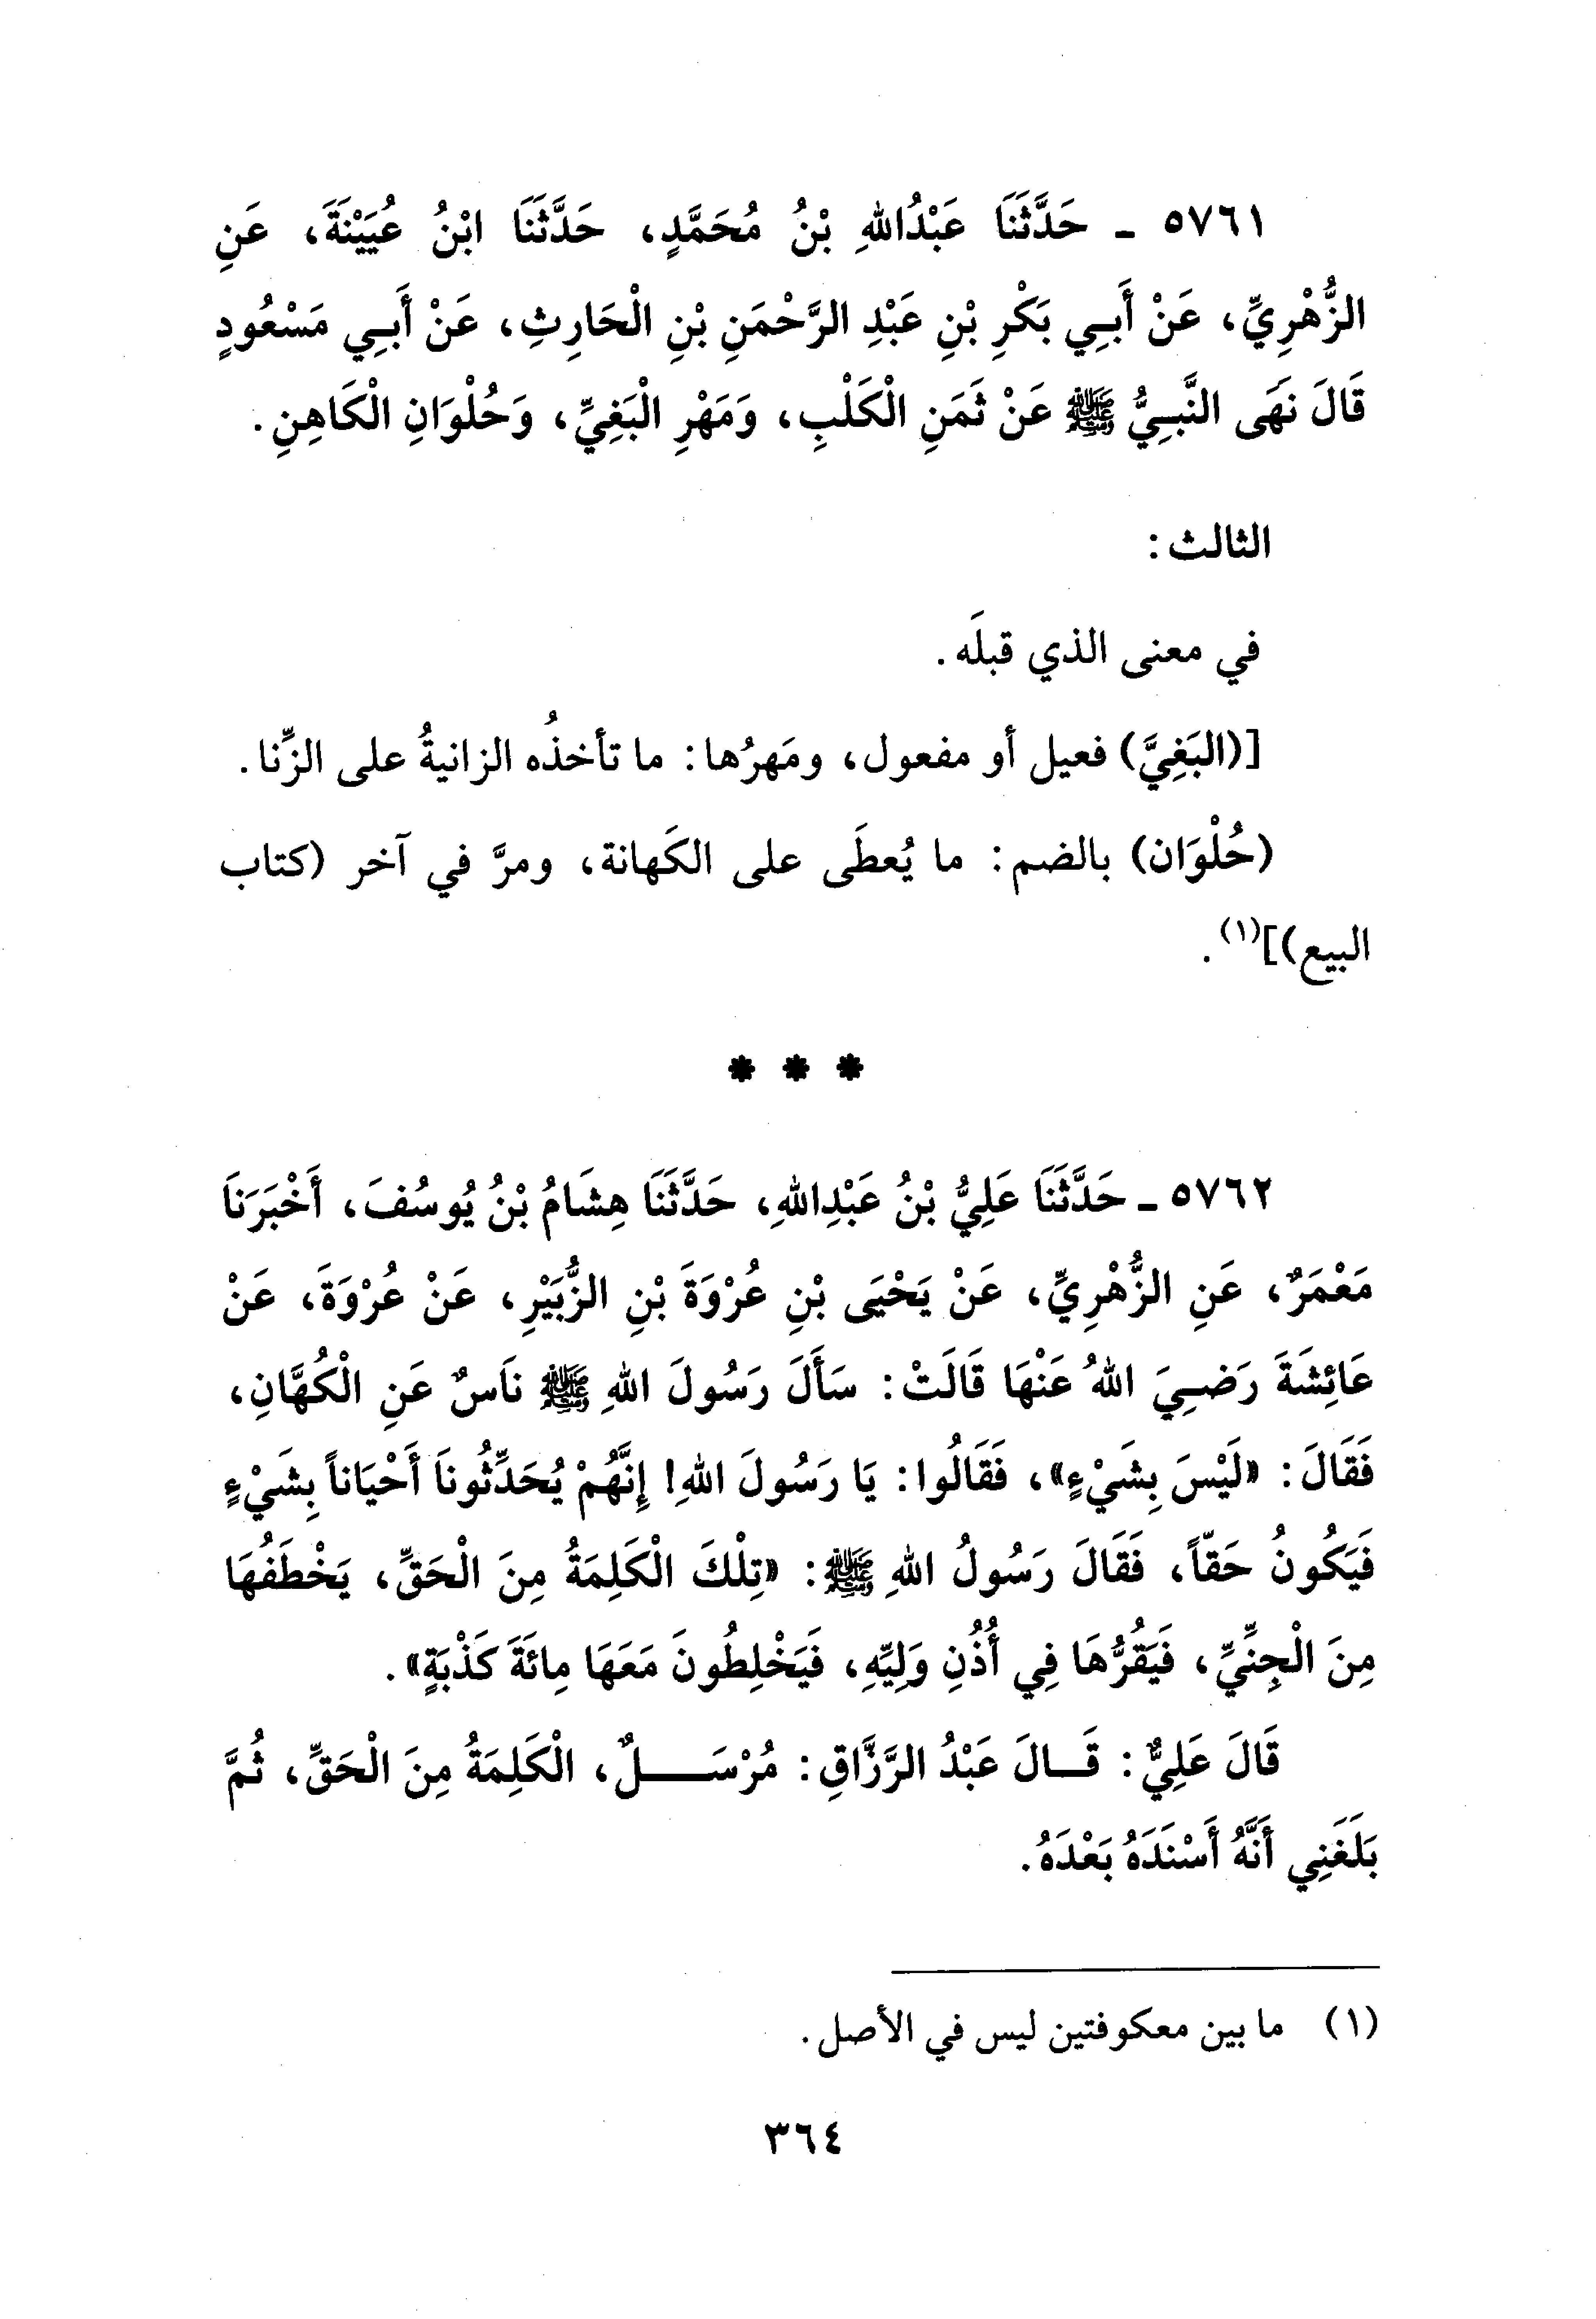 ٥٧٦١ ـ حَدَّثَنَا عَبْدُاللهِ بْنُ مُحَمَّدٍ، حَدَّثَنَا ابْنُ عُيَيْنَةَ، عَنِ
الزُّهْرِيِّ، عَنْ أَبِي بَكْرِ بْنِ عَبْدِ الرَّحْمَنِ بْنِ الْحَارِثِ، عَنْ أَبِي مَسْعُودٍ
قَالَ نَهَى النَّبِيُّ ﷺ عَنْ ثَمَنِ الْكَلْبِ، وَمَهْرِ الْبَغِيِّ، وَحُلْوَانِ الْكَاهِنِ.
الثالث:
في معنى الذي قبلَه.
[(البَغِيَّ) فعيل أو مفعول، ومَهرُها: ما تأخذُه الزانيةُ على الزِّنا.
(حُلْوَان) بالضم: ما يُعطَى على الكَهانة، ومرَّ في آخر (كتاب
البيع)](١).
* * *
٥٧٦٢ ـ حَدَّثَنَا عَلِيُّ بْنُ عَبْدِاللهِ، حَدَّثَنَا هِشَامُ بْنُ يُوسُفَ، أَخْبَرَنَا
مَعْمَرٌ، عَنِ الزُّهْرِيِّ، عَنْ يَحْيَى بْنِ عُرْوَةَ بْنِ الزُّبَيْرِ، عَنْ عُرْوَةَ، عَنْ
عَائِشَةَ رَضِيَ اللهُ عَنْهَا قَالَتْ: سَأَلَ رَسُولَ اللهِ ﷺ نَاسٌ عَنِ الْكُهَّانِ،
فَقَالَ: «لَيْسَ بِشَيْءٍ»، فَقَالُوا: يَا رَسُولَ اللهِ! إِنَّهُمْ يُحَدِّثُونَا أَحْيَاناً بِشَيْءٍ
فَيَكُونُ حَقّاً، فَقَالَ رَسُولُ اللهِ ﷺ: «تِلْكَ الْكَلِمَةُ مِنَ الْحَقِّ، يَخْطَفُهَا
مِنَ الْجِنِّيِّ، فَيَقُرُّهَا فِي أُذُنِ وَلِيِّهِ، فَيَخْلِطُونَ مَعَهَا مِائَةَ كَذْبَةٍ».
قَالَ عَلِيٌّ: قَـالَ عَبْدُ الرَّزَّاقِ: مُرْسَـــلٌ، الْكَلِمَةُ مِنَ الْحَقِّ، ثُمَّ
بَلَغَنِي أَنَّهُ أَسْنَدَهُ بَعْدَهُ.
(١) ما بين معكوفتين ليس في الأصل.
٣٦٤